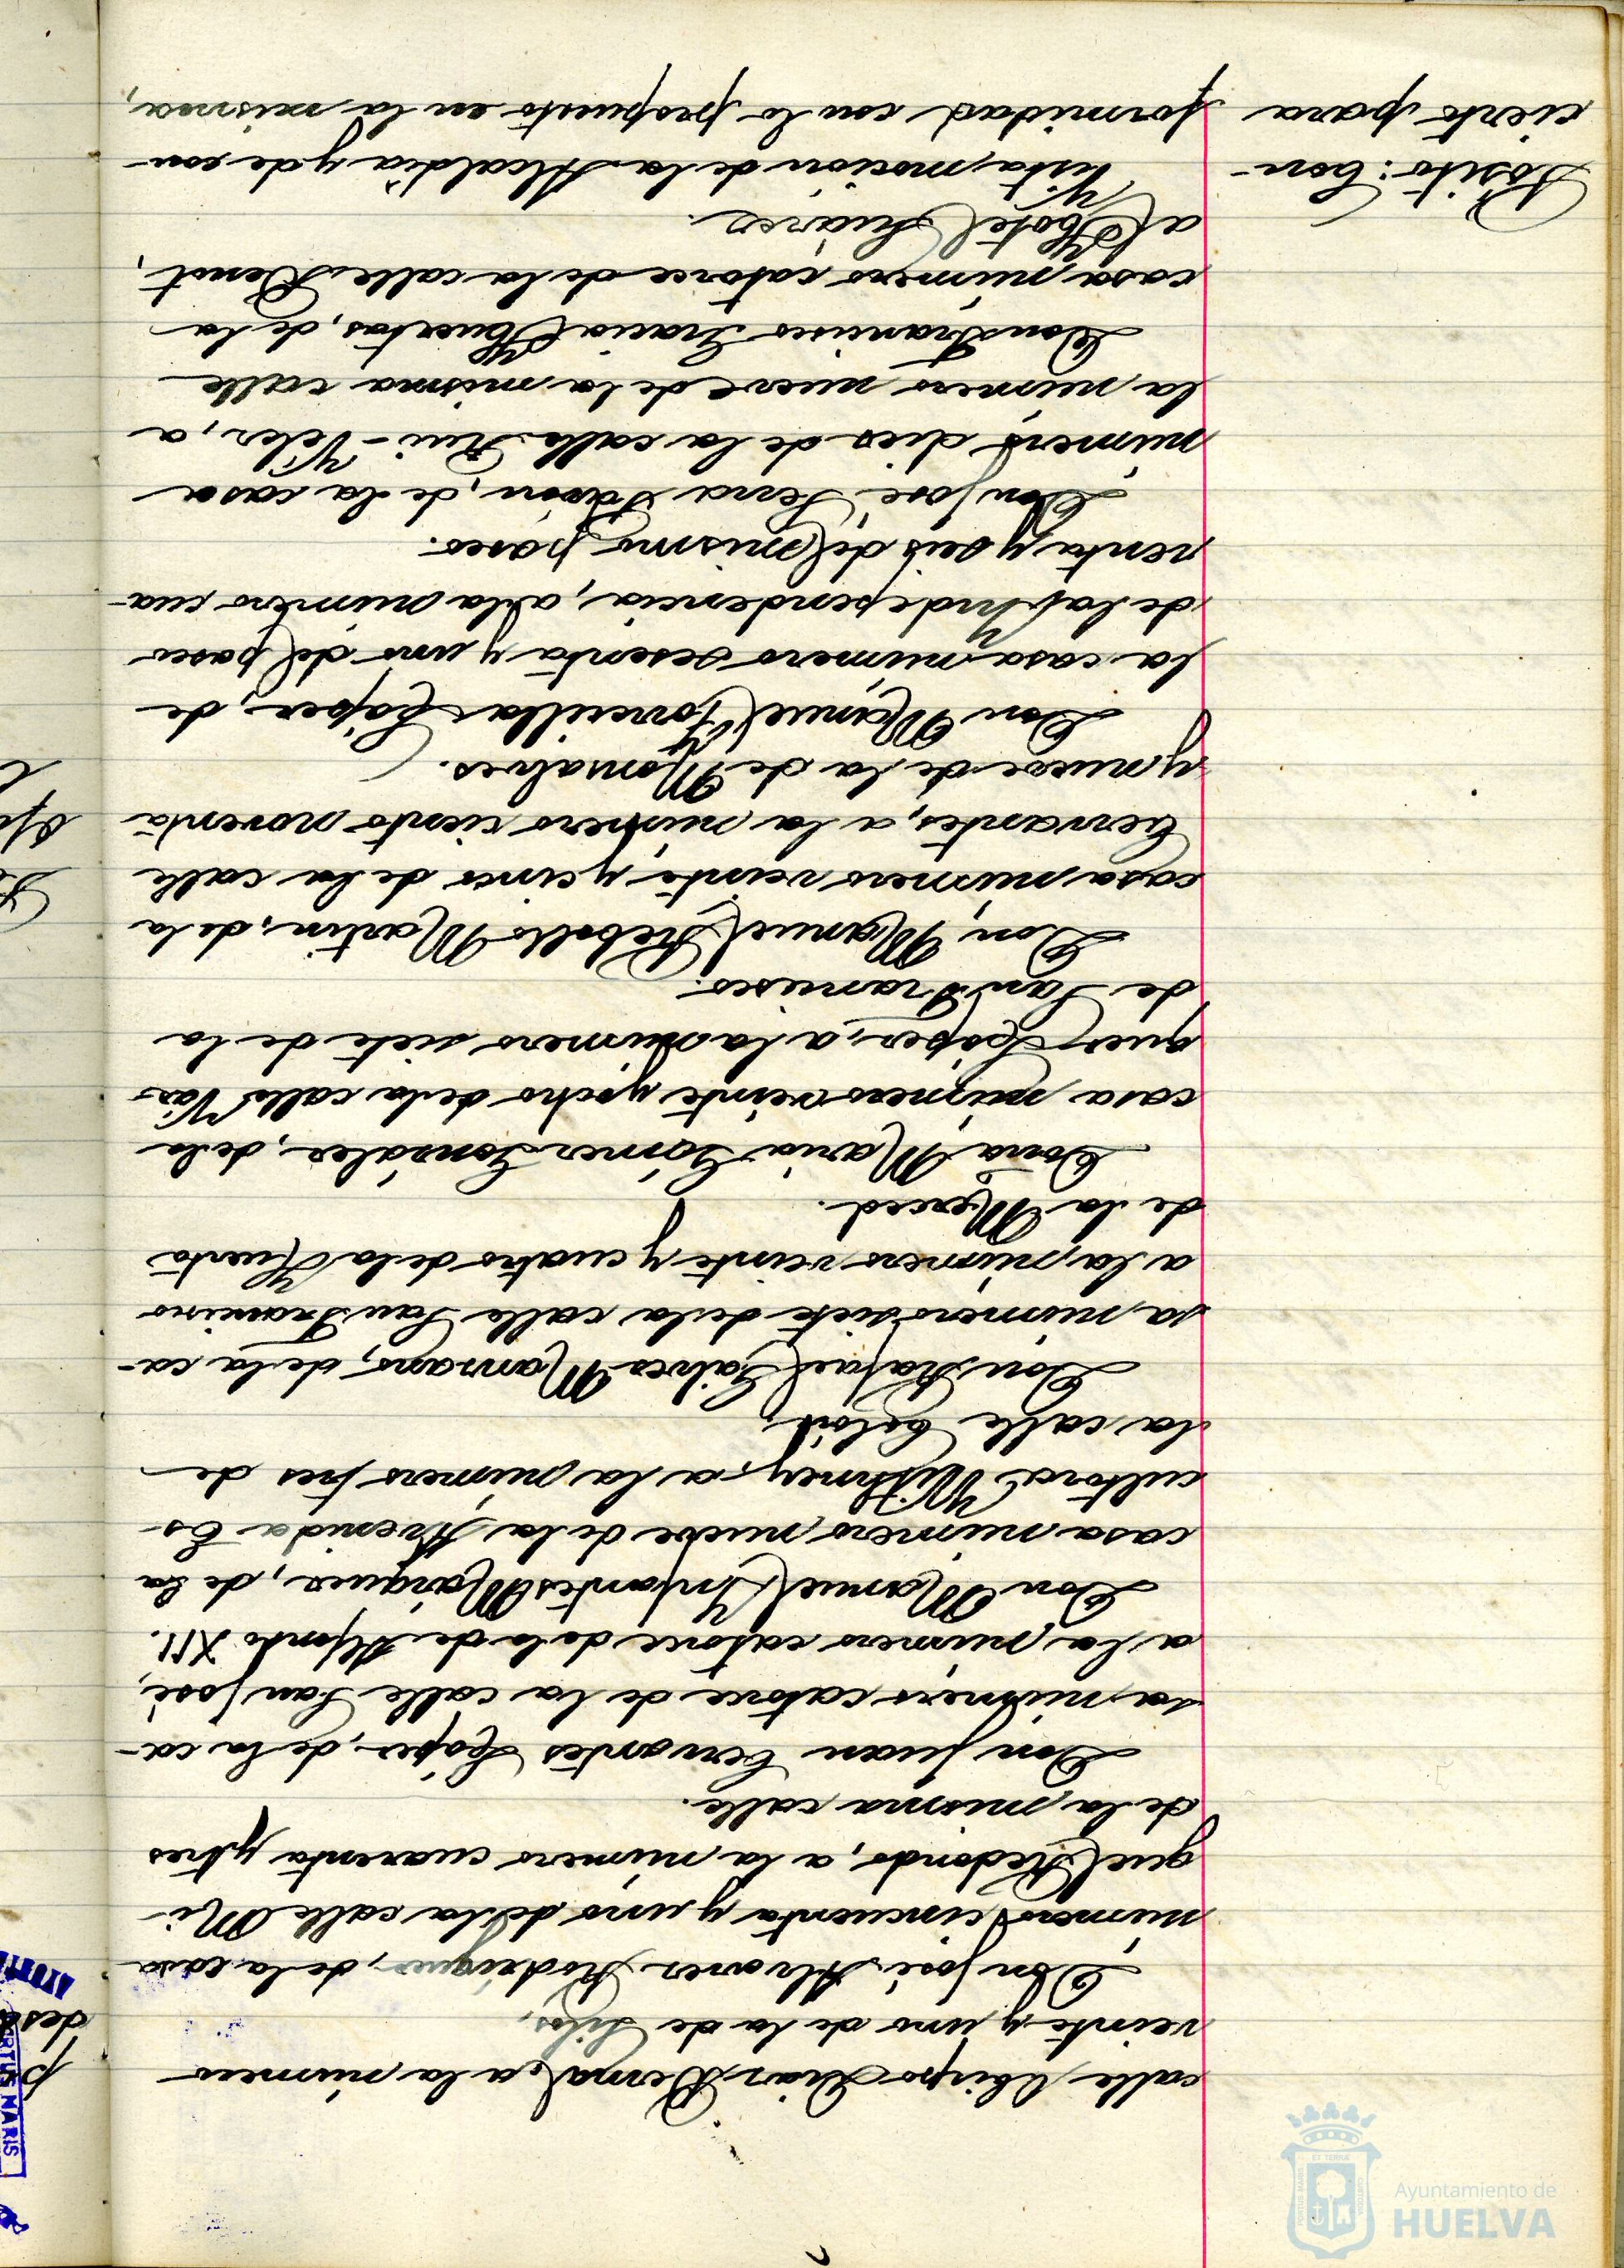 calle Obispo Diaz Bernal, a la número
veinte y uno de la de Silos.
Don José Alvarez Rodriguez, de la casa
número cincuenta y uno de la calle Mi-
guel Redondo, a la número cuarenta y tres
de la misma calle.
Don Juan Cervantes López, de la ca-
sa número catorce de la calle San José,
a la número catorce de la de Alfonso XII.
Don Manuel Infantes Márquez, de la
casa número nueve de la Avenida Es-
cultora Withney, a la número tres de
la calle
Don Rafael Galvez Manzano, de la ca-
sa número siete de la calle San Francisco
a la número veinte y cuatro de la Huerta
de la Merced.
Doña Maria Gómez González, de la
casa número veinte y ocho de la calle Váz-
quez López, a la número siete de la
de San Francisco.
Don Manuel Rebollo Martin, de la
casa número veinte y cinco de la calle
Cervantes, a la número ciento noventa
y nueve de la de Monsalves.
Don Manuel López, de
la casa número sesenta y uno del paseo
de la Independencia, a la número cua-
renta y seis del mismo paseo.
Don José Pavón, de la casa
número diez de la calle Rui-Velez, a
la número nueve de la misma calle
Don Francisco Gracia Huertas, de la
casa número catorce de la calle Benot,
al Hotel Suárez.
Pósito: Con-
cierto para
Vista, moción de la Alcaldía y de con-
formidad con lo propuesto en la misma,
Ayuntamiento de
HUELVA